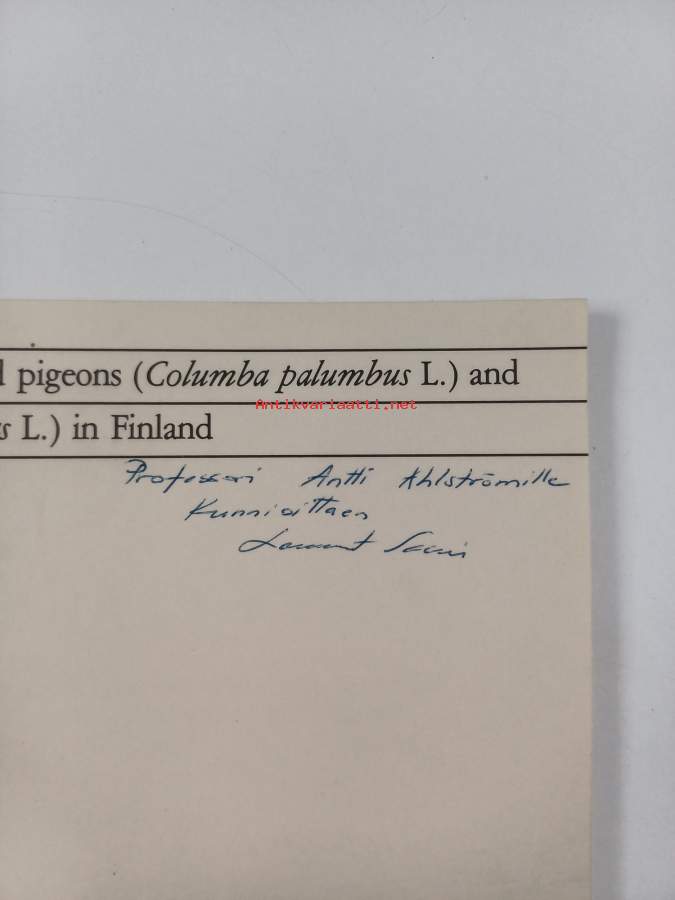 pigeons (Columba palumbus L.) and
Antikvariaatti.net
L.) in Finland
Professori Antti Ahlströmille
Kunnioittaen